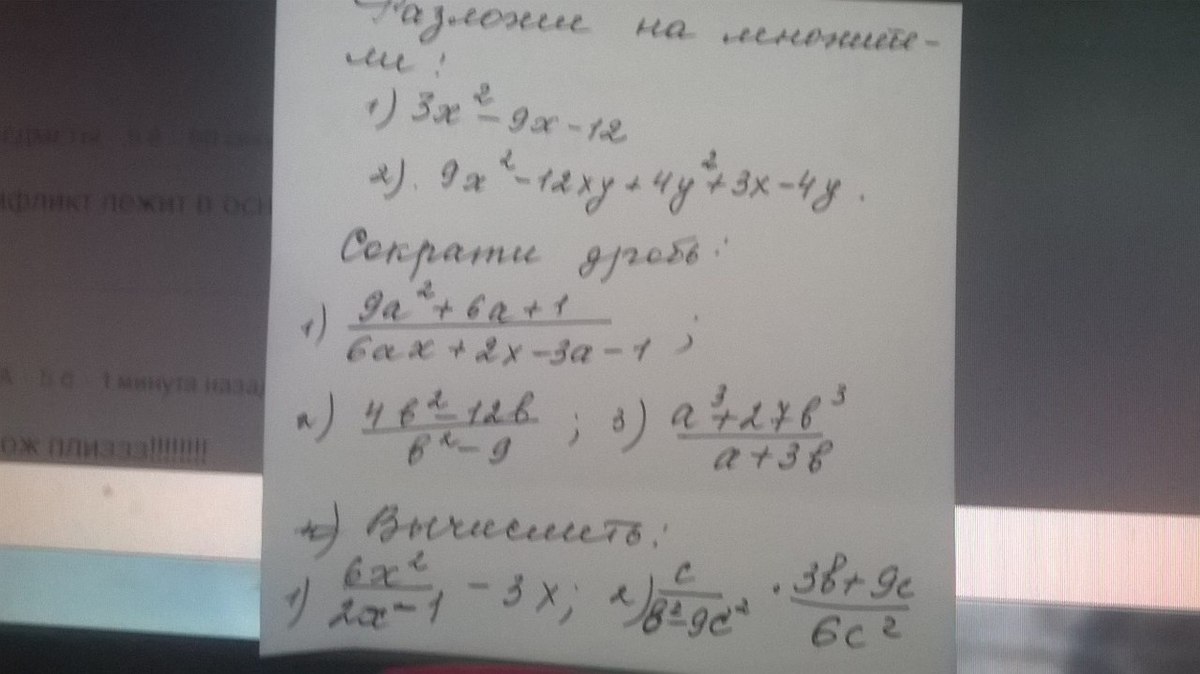 Разложи на множите-
ли:
1) 3x² - 9x - 12
2). 9x² - 12xy + 4y² + 3x - 4y.
Сократи дробь:
1) (9a² + 6a + 1)/(6ax + 2x - 3a - 1);
2) (4в² - 12в)/(в² - 9); 3) (a³ + 27в³)/(a + 3в)
Вычислить:
1) 6x²/(2x - 1) - 3x; 2) c/(в² - 9c²) · (3в + 9c)/(6c²)
фликт лежит в осн
1 минута назад
ож плизза!!!!!!!!!